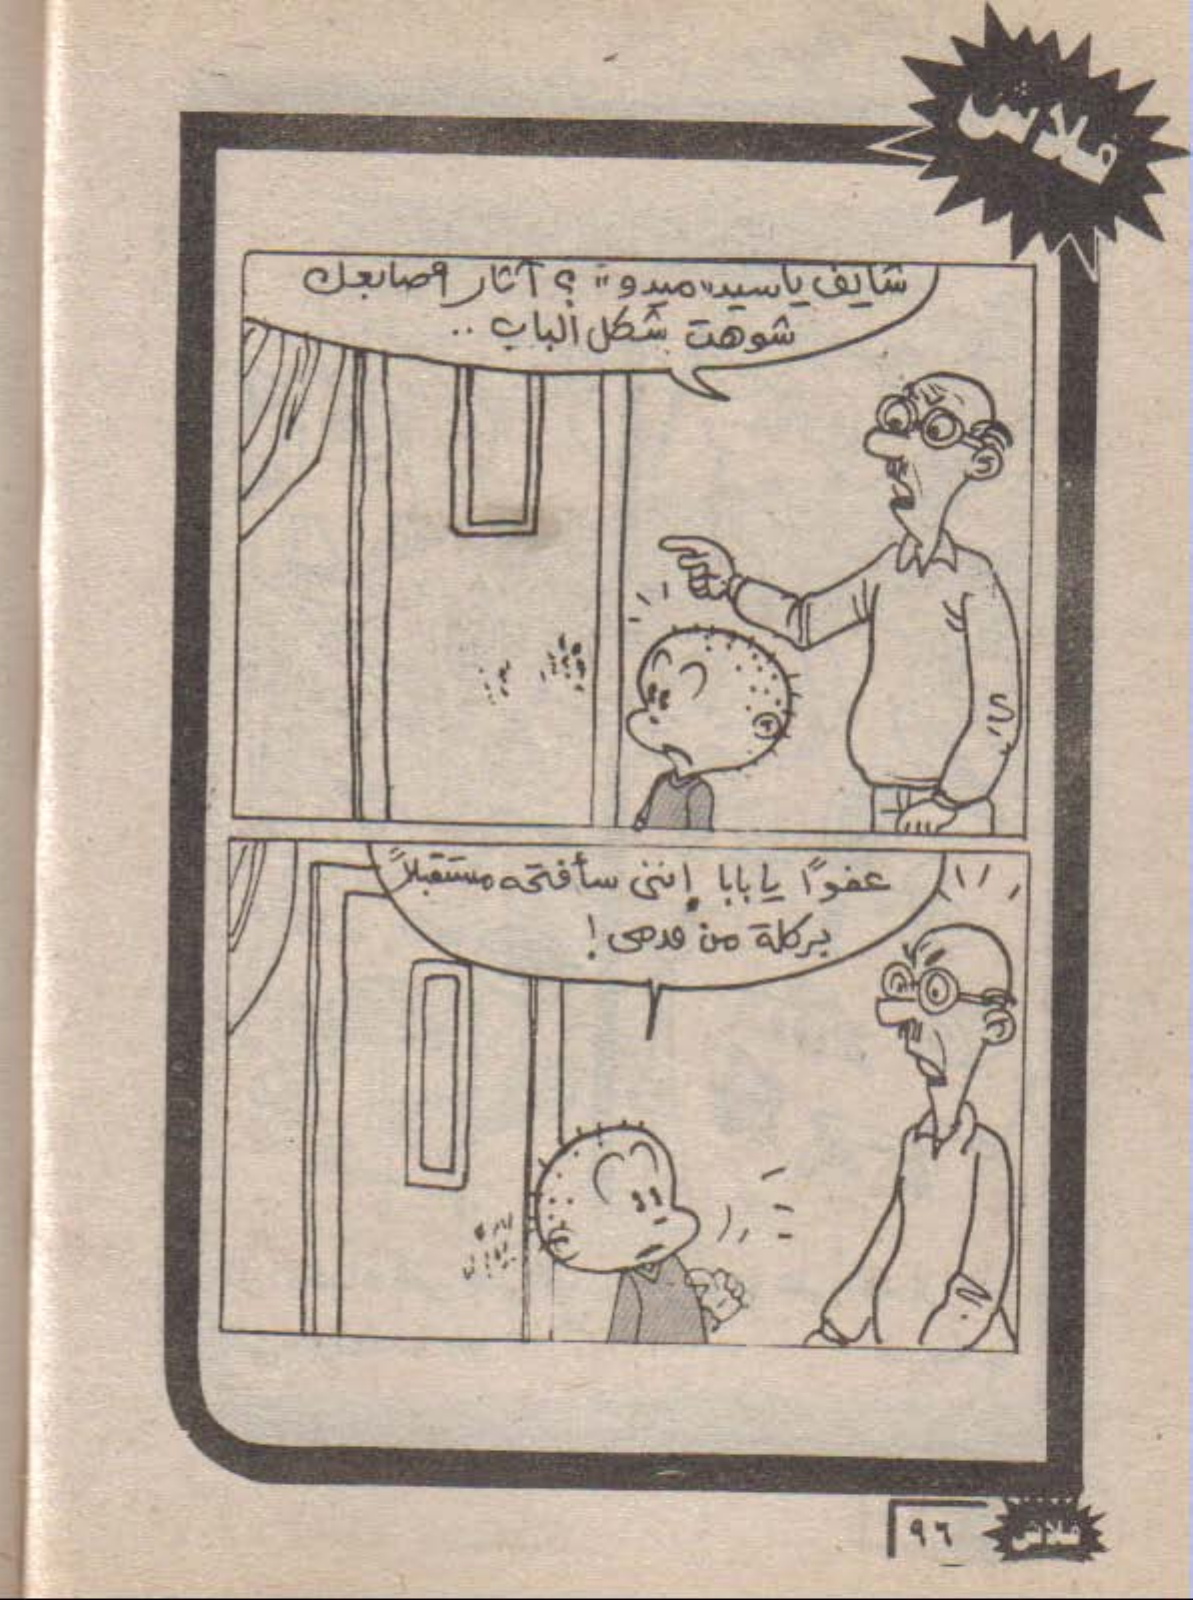 فلاش
شايف يا سيد "ميدو" ؟ آثار صابعك
شوهت شكل الباب ..
عفوًا يا بابا إننى سأفتحه مستقبلاً
بركلة من قدمى !
٩٦
فلاش